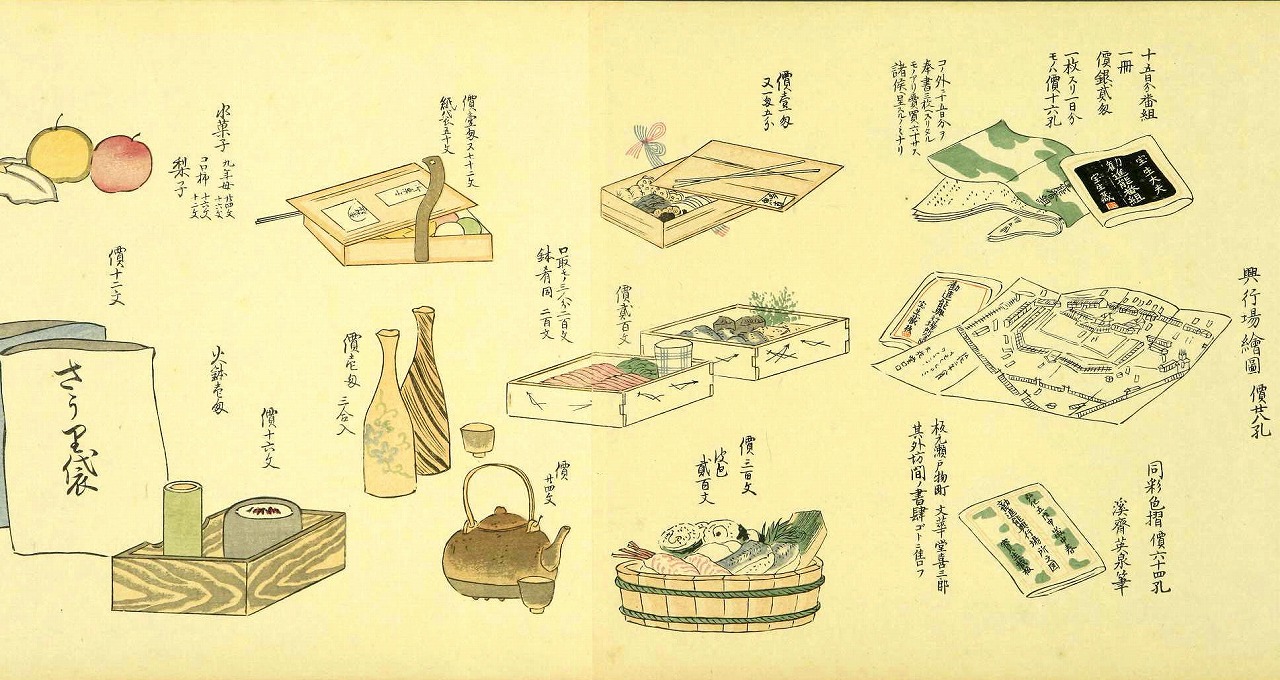 十五日分番組
一冊
價銀貳匁
一枚スリ一日分
モノハ價十六孔
コノ外ニ十五日分ヲ
奉書三枚ヘスリタル
諸侯ヘ呈スルノミナリ
宝生大夫
勧進能番組
宝生蔵
興行場繪圖 價廿八孔
同彩色摺 價六十四孔
溪齊英泉筆
板元瀬戸物町 文華堂喜三郎
其外坊間ノ書肆ゴトニ售ロフ
價壹匁
又一匁五分
價貳百文
口取モノ三人分二百文
鉢肴同 二百文
價三百文
貳百文
價壹匁又七十二文
紙代五十文
價壱匁 三合入
價
廿四文
水菓子
九年母 廿四文
十六文
コロ柿 十六文
梨子 十二文
價十二文
火鉢壱匁
價十六文
さうり袋